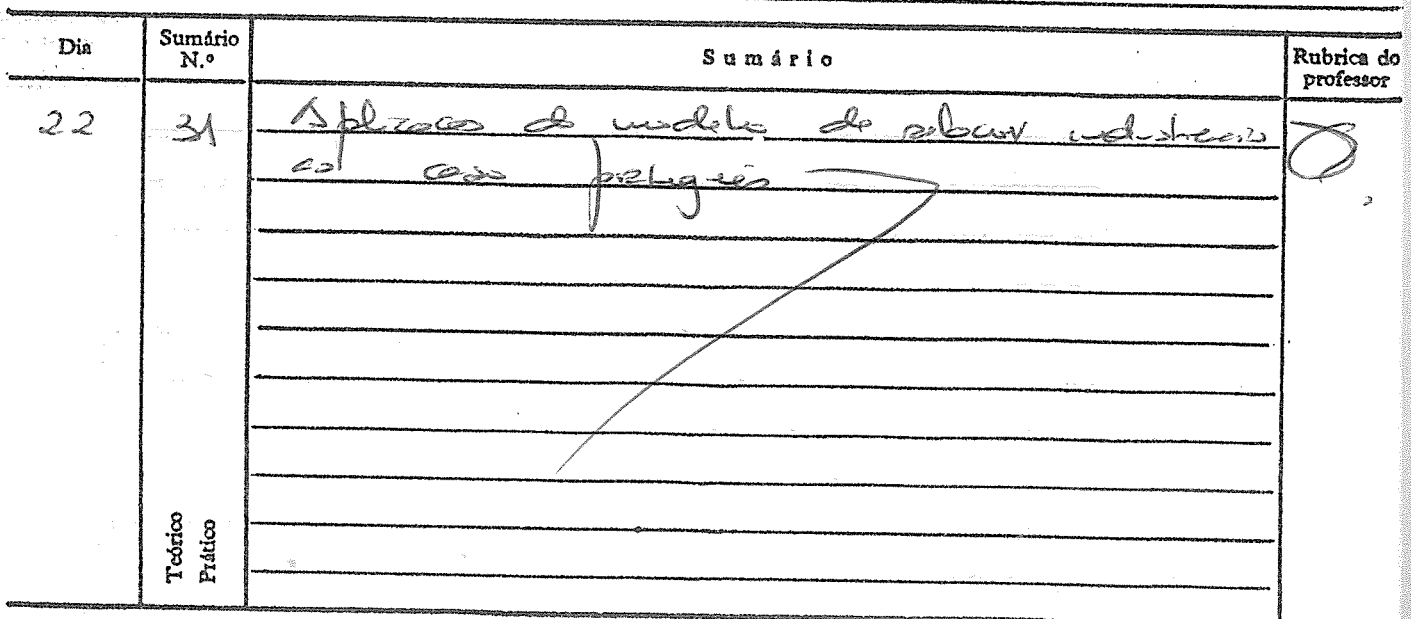 Dia
Sumário N.º
Sumário
Rubrica do professor
22
31
Aplicação do modelo de industriais
ao caso português
Teórico
Prático